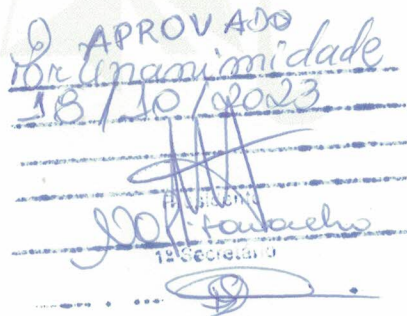 APROVADO
Por unanimidade
18/10/2023
Presidente
1º Secretario